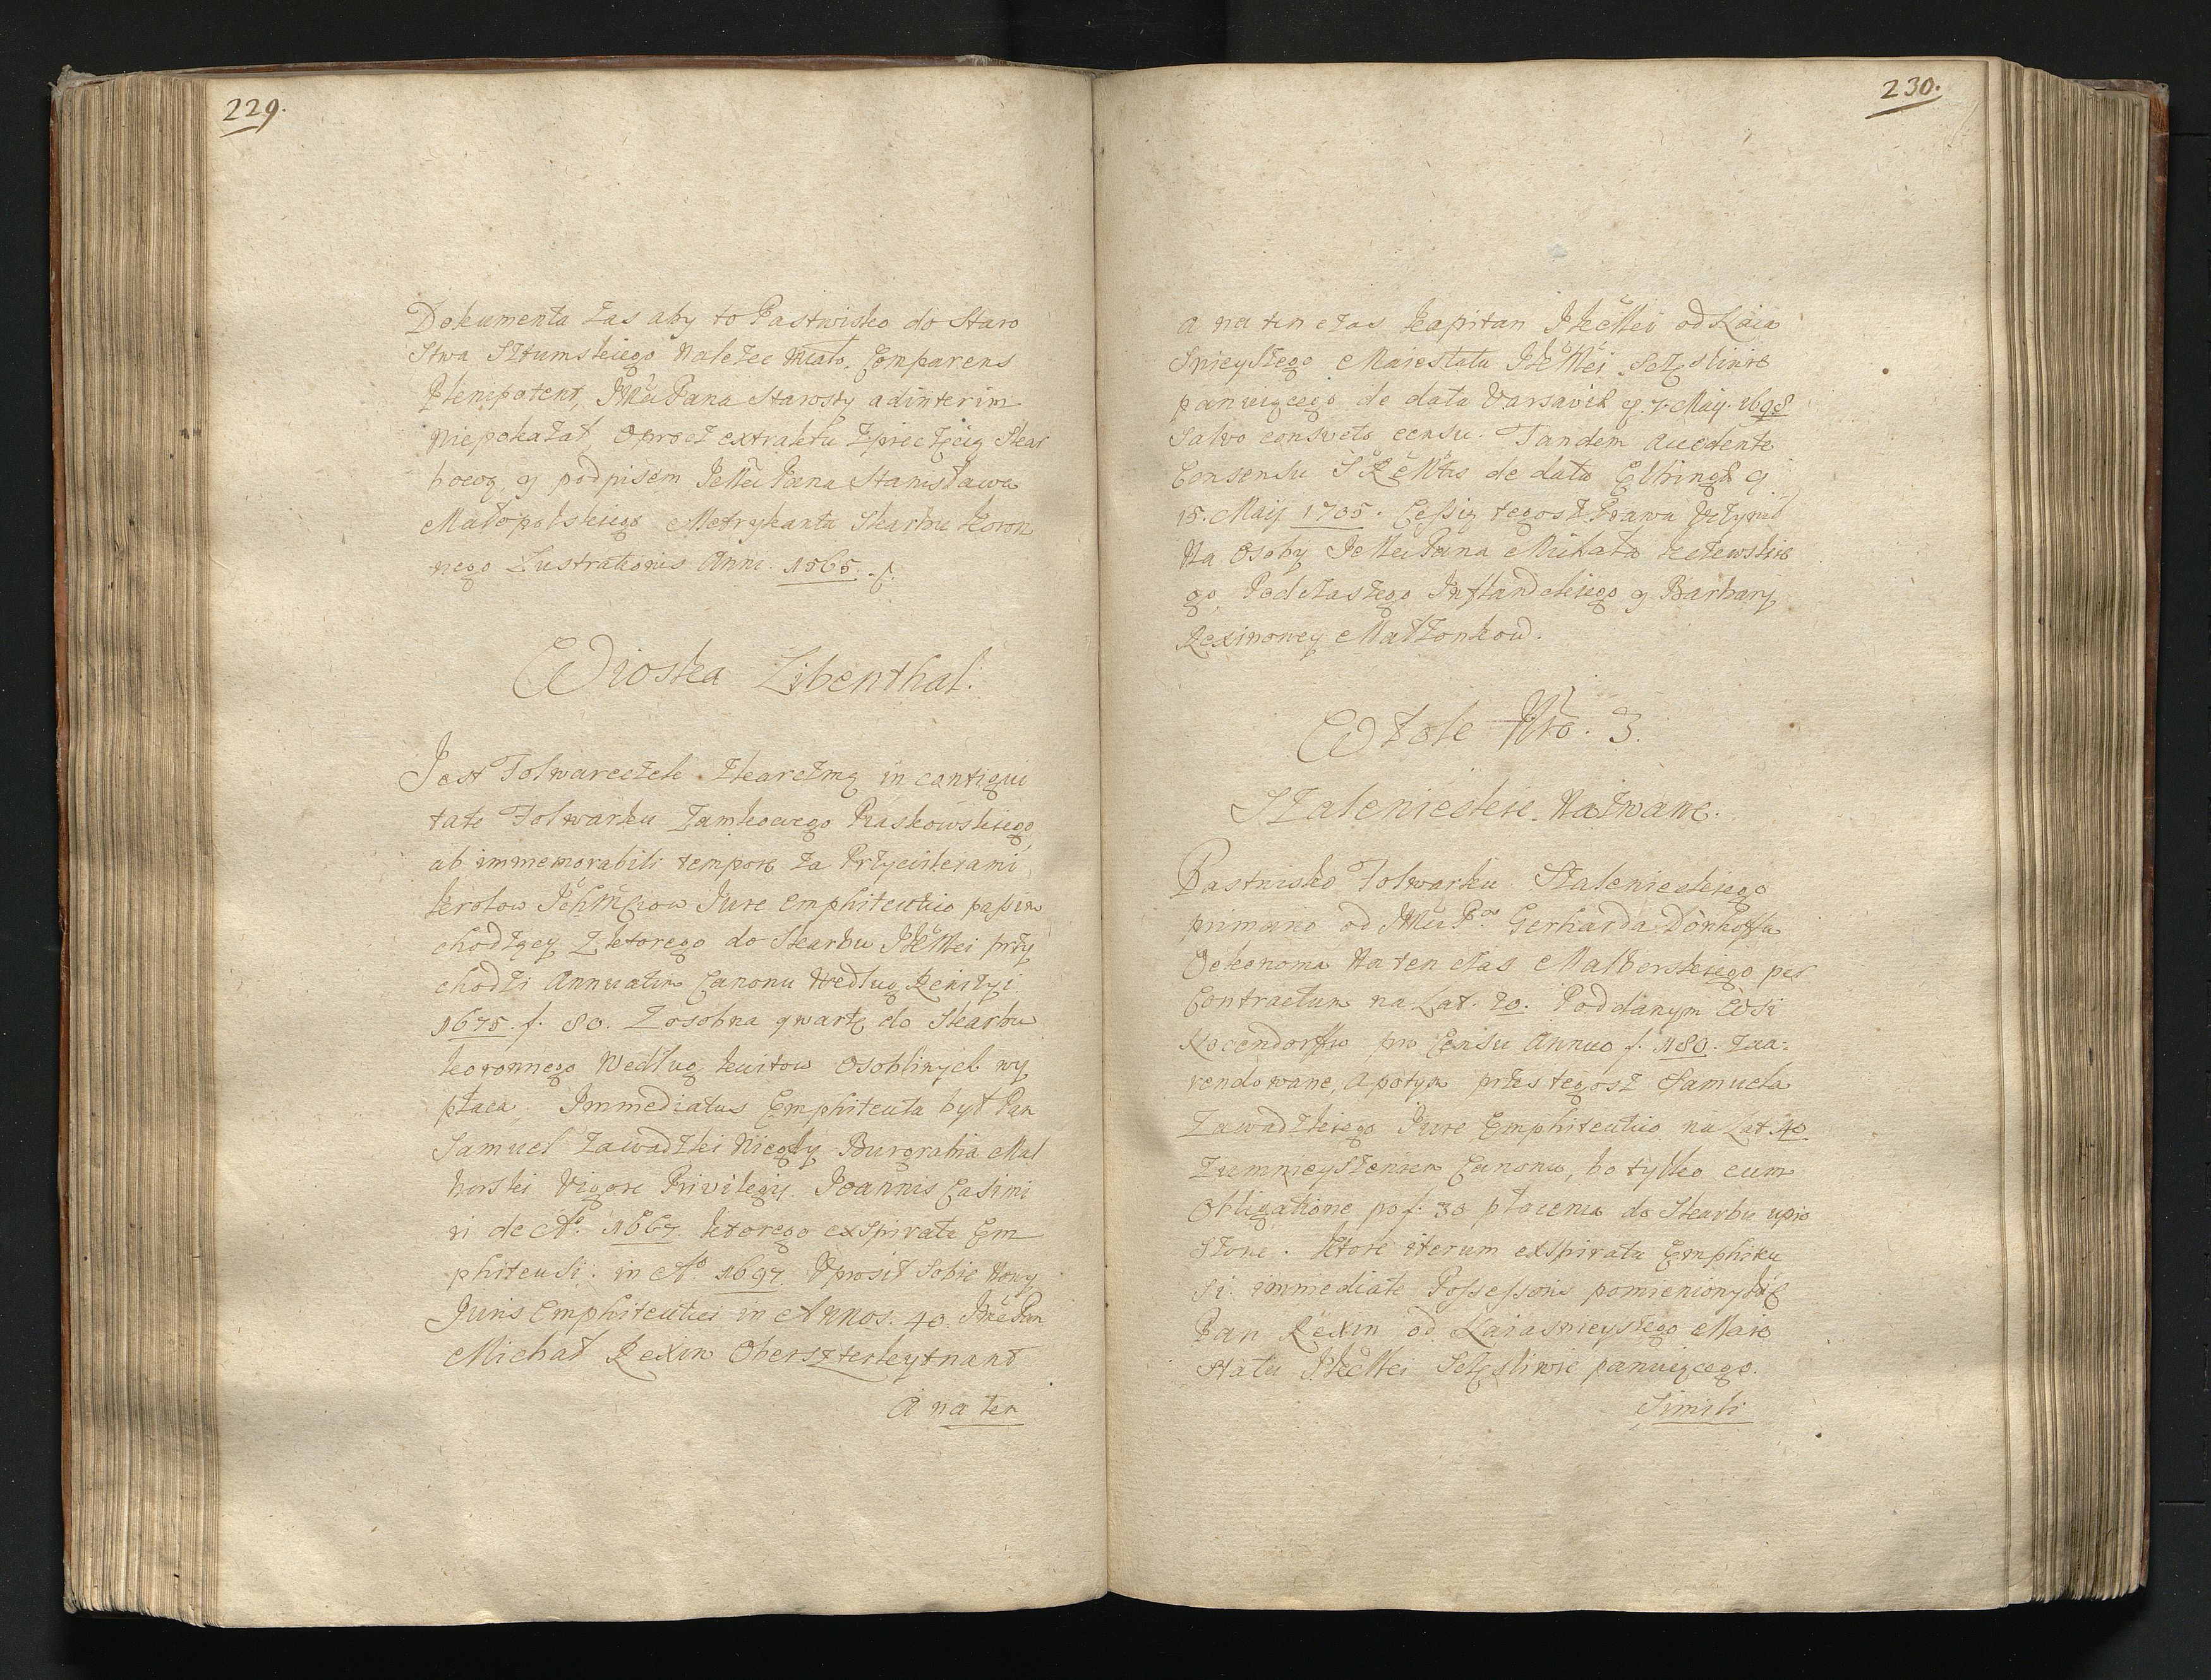 229.
Dokumenta zas aby to Pastwisko do Staro
stwa Sztumskiego należec miało. Comparens
Plenipotent, JMci Pana Starosty adinterim
niepokazał, oprocz extraktu zpieczęcią Skar
bową y podpisem JeMci Pana Stanisława
Małopolskiego Metrykanta Skarbu koron
nego Lustrationis Anni. 1565. f.
Wioska Libenthal.
Jest Folwarczek zkarczmą in contigui
tate Folwarku Zamkowego Kaskowskiego
ab immemorabili tempore za Przywileiami
krolow Jure Emphiteutico passim
chodzący zktorego do Skarbu JKMci przy
chodzi Annuatim Canonu według Rewizyi
1675. f. 80. Zosobna qwartę do Skarbu
koronnego według kwitow osobliwych wy
płaca. Immediatus Emphiteuta był Pan
Samuel Zawadzki niegdy Burgrabia Mal
borski vigore Privilegij Joannis Casimi
ri de Aº. 1667. ktorego exspirata Em
phiteusi. in Aº. 1697. Uprosił sobie nowy
Juris Emphiteutici in Annos. 40. Jmć Pan
Michał Rexin Oberszterleytnant
A na ten
230.
a na ten czas kapitan JKMci od Naia
snieyszego Maiestatu JKMci Sczęsliwie
panuiącego de data Varsaviæ 9. 7. Maij. 1698
salvo consveto censu. Tandem accedente
Consensu S R Mtis de data Elbingæ 9
15. Maij 1705. Cessią tegosz Prawa uczynił
na osoby JeMci Pana Michała kczewskie
go, Podczaszego Inflandskiego y Barbary
Rexinowey Małżonkow.
W Pole Nro. 3.
Szalenieckie nazwane.
Pastwisko Folwarku Szalenieckiego
primario od JMci Pª Gerharda Dönhoffa
Oekonoma na ten czas Malborskiego per
Contractum na Lat. 20. Poddanym Wsi
pro Censu Annuo f. 180. zaa-
rendowane, a potym przes tegosz Samuela
Zawadzkiego Jure Emphiteutico na Lat 40
zumnieyszeniem Canonu, bo tylko cum
Obligatione po f. 30 płacenia do Skarbu upro
szone. ktore iterum exspirata Emphiteu
si. immediate Possessoris pomieniony
Pan Rexin od Naiasnieyszego Maie
statu JKMci Sczęsliwie panuiącego.
Simili